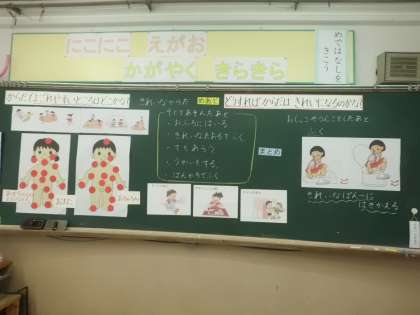 にこにこ えがお
かがやく きらきら
めではなしを
きこう
からだでよごれやすいところはどこかな
きれいなからだ
めあて
どうすればからだはきれいになるのかな
そとであそんだあと
・おふろにはいる
・きれいなたおるでふく
・てをあらう
・うがいをする。
・はんかちでふく
まとめ
ふく
きれいなぱんつに
はきかえる